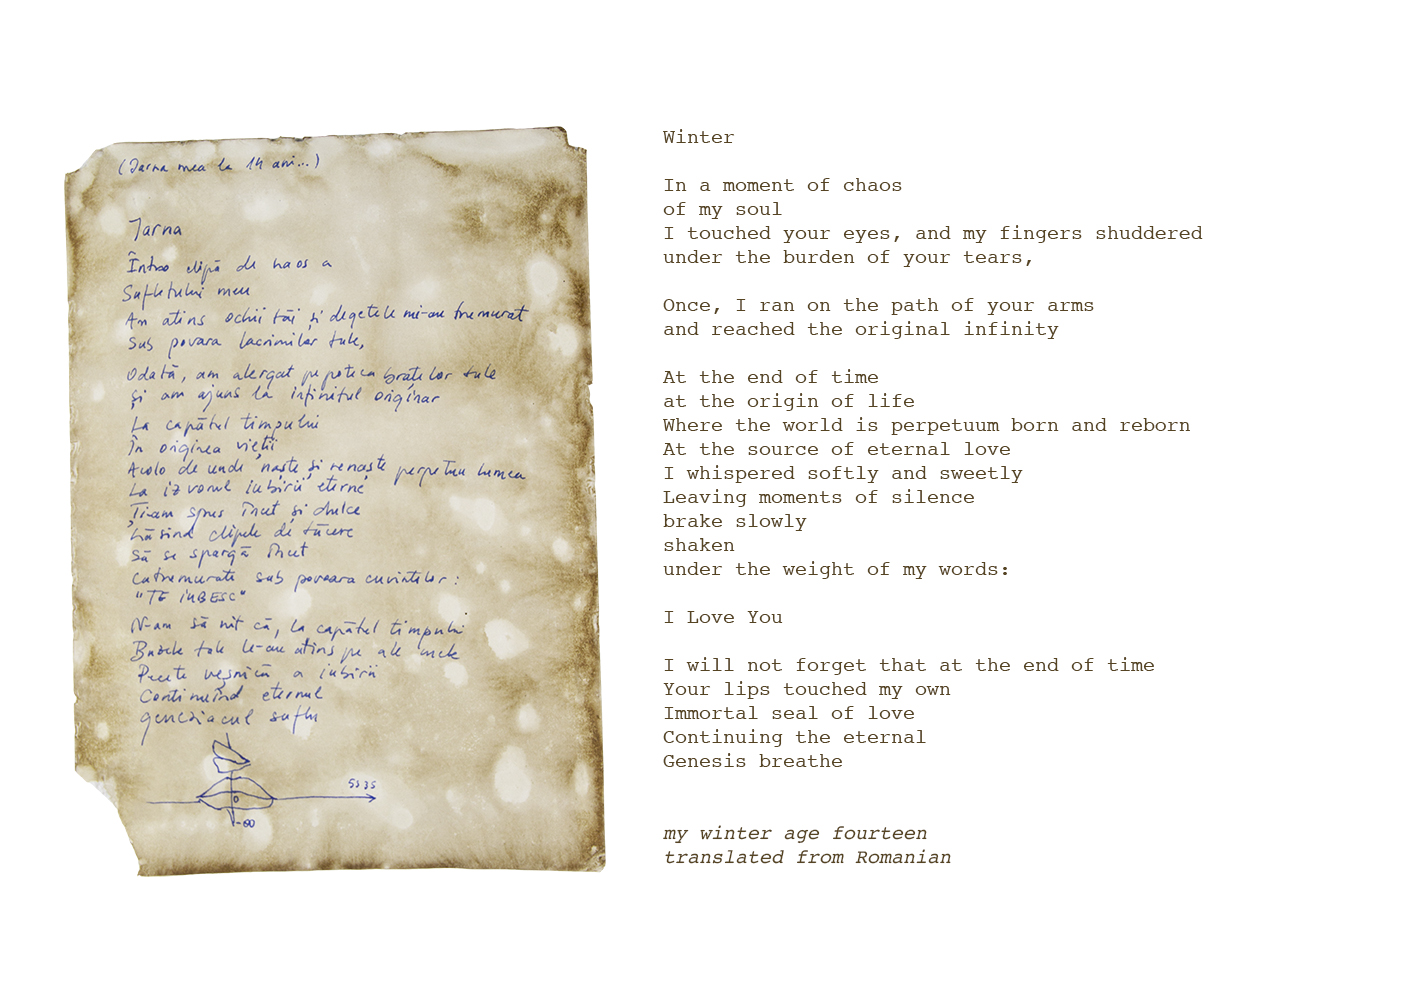 (Iarna mea la 14 ani...)
Iarna
Într-o clipă de haos a
Sufletului meu
Am atins ochii tăi și degetele mi-au tremurat
Sub povara lacrimilor tale,
Odată, am alergat pe poteca brațelor tale
și am ajuns la infinitul originar
La capătul timpului
În originea vieții
Acolo de unde naște și renaște perpetuu lumea
La izvorul iubirii eterne
Ți-am spus încet și dulce
Lăsînd clipele de tăcere
Să se spargă încet
Cutremurate sub povara cuvintelor:
"TE IUBESC"
N-am să uit că, la capătul timpului
Buzele tale le-au atins pe ale mele
Pecete veșnică a iubirii
Continuînd eternul
suflu
0
-∞
Winter
In a moment of chaos
of my soul
I touched your eyes, and my fingers shuddered
under the burden of your tears,
Once, I ran on the path of your arms
and reached the original infinity
At the end of time
at the origin of life
Where the world is perpetuum born and reborn
At the source of eternal love
I whispered softly and sweetly
Leaving moments of silence
brake slowly
shaken
under the weight of my words:
I Love You
I will not forget that at the end of time
Your lips touched my own
Immortal seal of love
Continuing the eternal
Genesis breathe
my winter age fourteen
translated from Romanian